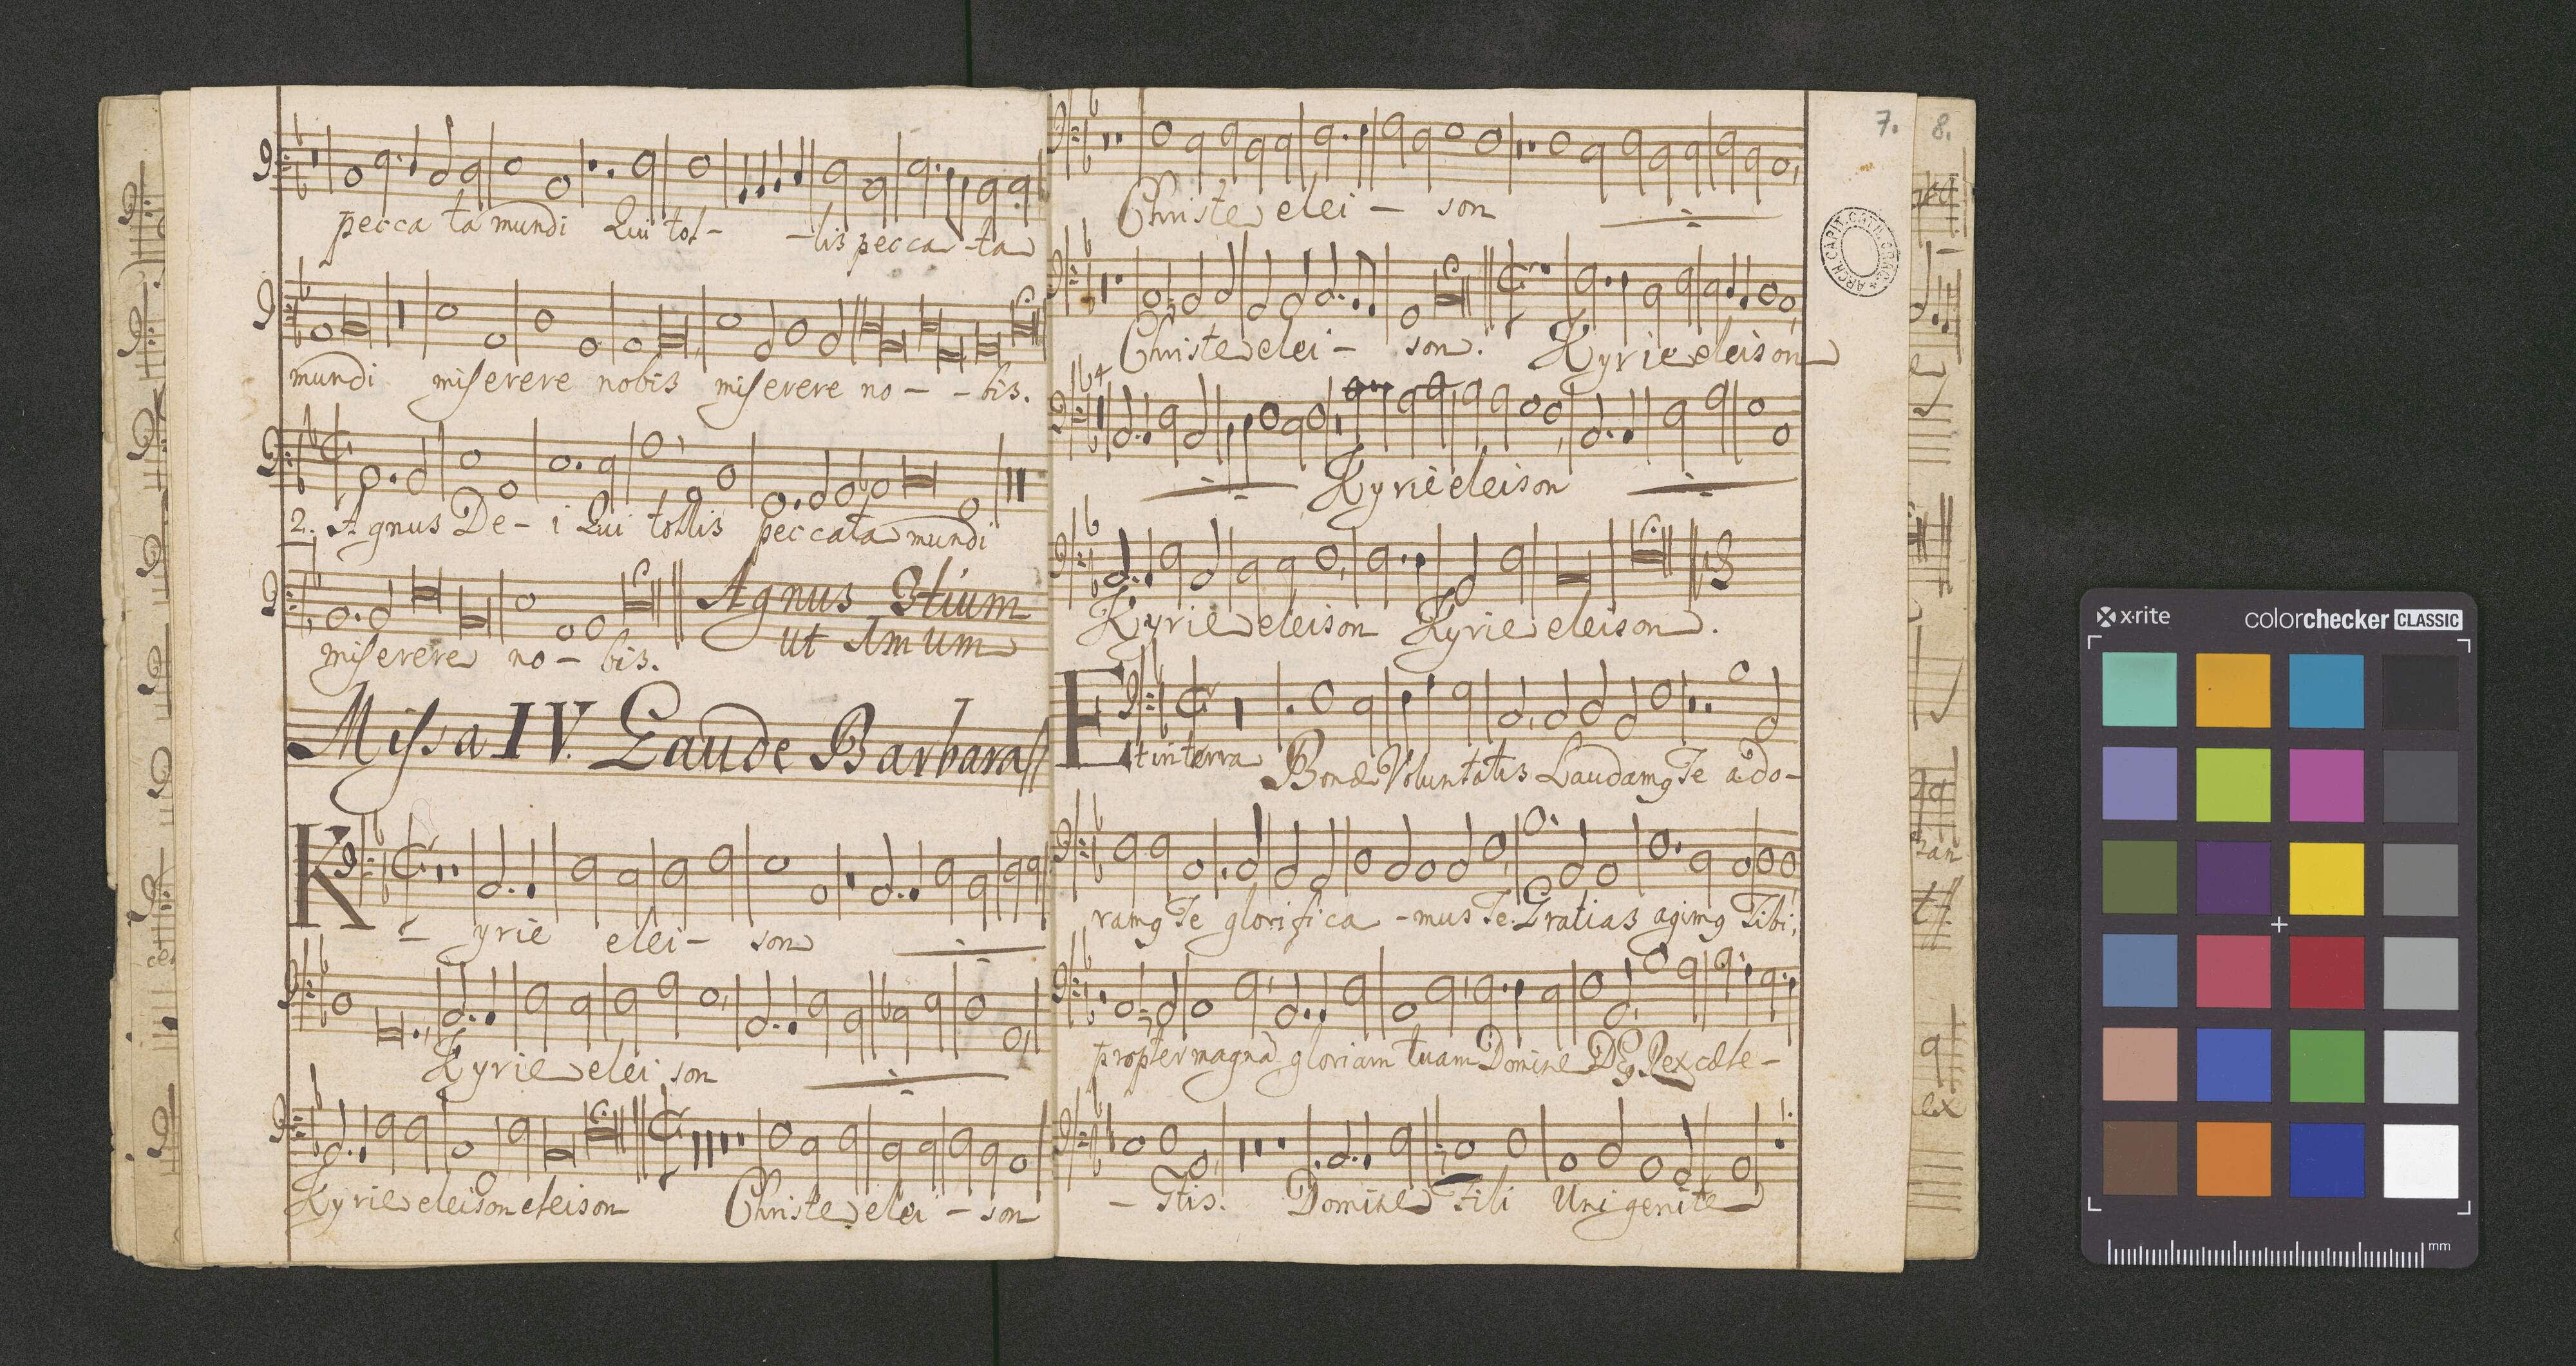 pecca ta mundi Qui tol- -lis pecca -ta
mundi miserere nobis miserere no - - bis.
2. Agnus De - i Qui tollis peccata mundi
miserere no - bis. Agnus 3tium
ut 1mum
Missa IV. Gaude Barbara
K - yrie elei - son
Kyrie elei son
Kyrie eleison eleison Christe elei - son
7. 8.
Christe elei - son
Christe elei - son. Kyrie eleison
Kyrie eleison
Kyrie eleison Kyrie eleison.
Et in terra Bonæ Voluntatis Laudamg Te ado-
ramg Te glorifica - mus Te. Gratias agimg Tibi,
propter magnã gloriam tuam Domine Deg Rex cœle -
- stis. Domine Fili Unigenite
x·rite
colorchecker CLASSIC
mm